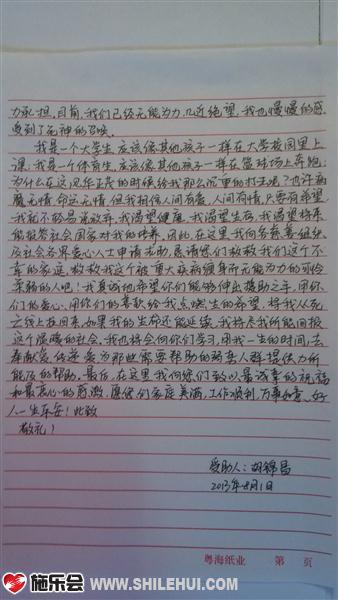 力承担,目前,我们已经无能为力,几近绝望,我也慢慢的感
受到了死神的召唤。
我是一个大学生,应该像其他孩子一样在大学校园里上
课,我是一个体育生,应该像其他孩子一样在篮球场上奔跑,
为什么在这风华正茂的时候给我那么沉重的打击呢?也许病
魔无情,命运无情,但我相信人间有爱,人间有情,只要有希望,
我就不轻易说放弃,我渴望健康,我渴望生存,我渴望将来
能报答社会国家对我的培养。因此,在这里我向各慈善组织
及社会各界爱心人士申请求助,恳请您们救救我们这个不
幸的家庭,救救我这个被重大疾病缠身所无能为力的可怜
柔弱的人吧!我真诚地希望你们能够伸出援助之手,用你
们的爱心、用你们的善款给我点燃生的希望,将我从死
亡线上拉回来,如果我的生命还能延续,我将尽我所能回报
这个温暖的社会,我也将会向你们学习,用我一生的时间,去
奉献爱,传承爱,为那些需要帮助的弱势人群提供力所
能及的帮助。最后,在这里我向您们致以最诚挚的祝福
和最衷心的感激,愿您们家庭美满,工作顺利,万事如意、好
人一生平安!此致
敬礼!
受助人:胡锦昌
2013年8月1日
粤海纸业 第 页
施乐会 WWW.SHILEHUI.COM